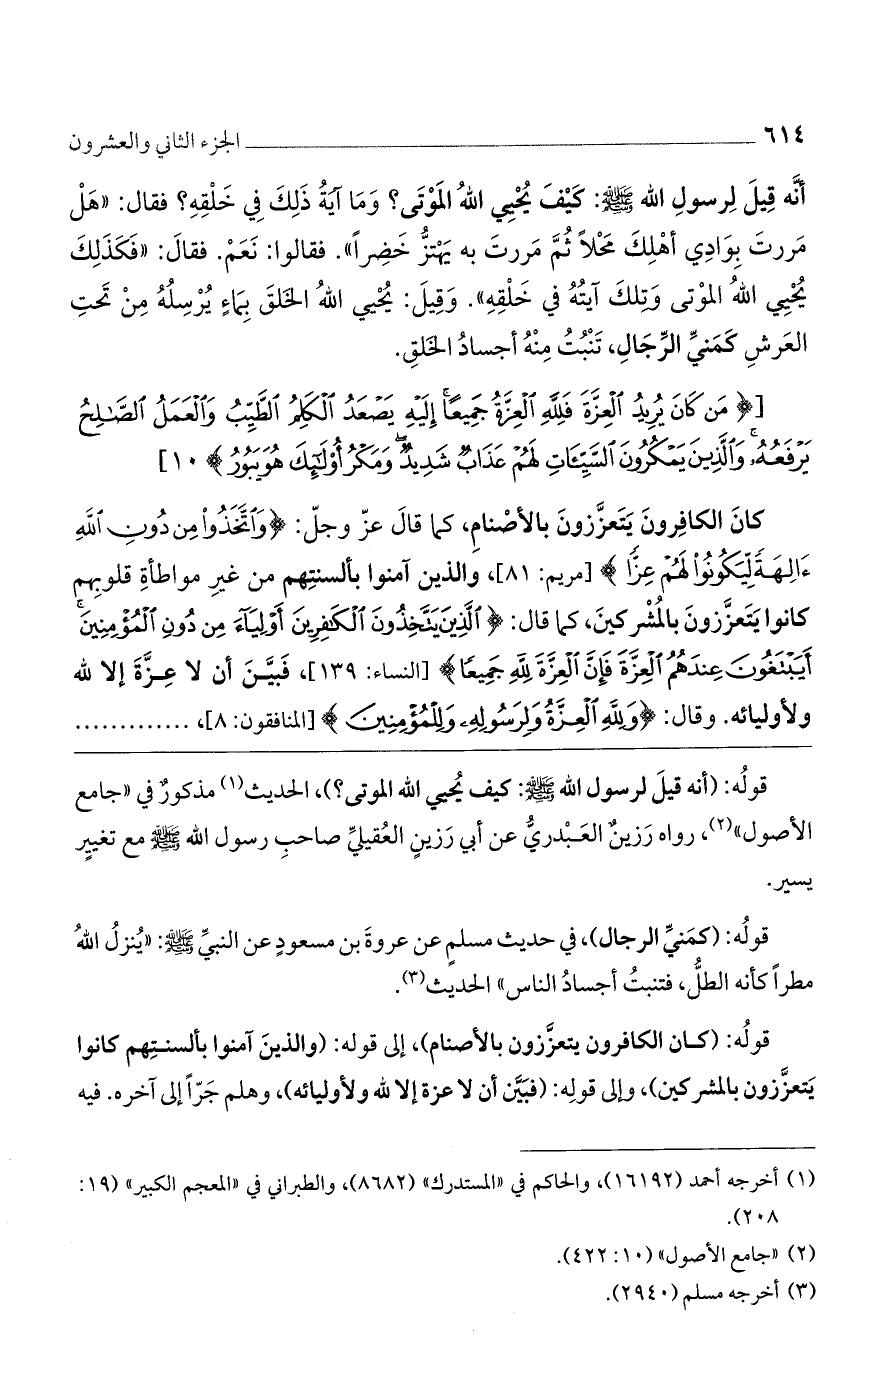 ٦١٤ ــــــــــــــــــــــــــــــــــــــــ الجزء الثاني والعشرون
أنَّه قِيلَ لِرسولِ الله ﷺ: كَيْفَ يُحْيِي اللهُ المَوْتَى؟ وَمَا آيَةُ ذَلِكَ فِي خَلْقِهِ؟ فقال: «هَلْ
مَررتَ بِوَادِي أهْلِكَ مَحْلاً ثُمَّ مَررتَ به يَهْتزُّ خَضِراً». فقالوا: نَعَمْ. فقالَ: «فَكَذَلِكَ
يُحْيِي اللهُ الموْتى وَتِلكَ آيتُهُ في خَلْقِهِ». وَقِيلَ: يُحْيي اللهُ الخَلقَ بِمَاءٍ يُرْسِلُهُ مِنْ تَحتِ
العَرشِ كَمَنيِّ الرِّجَالِ، تَنْبُتُ مِنْهُ أجسادُ الخَلقِ.
[﴿ مَن كَانَ يُرِيدُ ٱلْعِزَّةَ فَلِلَّهِ ٱلْعِزَّةُ جَمِيعًا ۚ إِلَيْهِ يَصْعَدُ ٱلْكَلِمُ ٱلطَّيِّبُ وَٱلْعَمَلُ ٱلصَّـٰلِحُ
يَرْفَعُهُۥ ۚ وَٱلَّذِينَ يَمْكُرُونَ ٱلسَّيِّـَٔاتِ لَهُمْ عَذَابٌ شَدِيدٌ ۖ وَمَكْرُ أُوْلَـٰٓئِكَ هُوَ يَبُورُ ﴾ ١٠]
كانَ الكافِرونَ يَتَعزَّزونَ بالأصْنامِ، كما قالَ عزّ وجلّ: ﴿وَٱتَّخَذُوا۟ مِن دُونِ ٱللَّهِ
ءَالِهَةً لِّيَكُونُوا۟ لَهُمْ عِزًّا ﴾ [مريم: ٨١]، والذين آمنوا بألسنتِهم من غيرِ مواطأةِ قلوبِهم
كانوا يَتَعزَّزونَ بالمُشْركينَ، كما قال: ﴿ ٱلَّذِينَ يَتَّخِذُونَ ٱلْكَـٰفِرِينَ أَوْلِيَآءَ مِن دُونِ ٱلْمُؤْمِنِينَ ۚ
أَيَبْتَغُونَ عِندَهُمُ ٱلْعِزَّةَ فَإِنَّ ٱلْعِزَّةَ لِلَّهِ جَمِيعًا﴾ [النساء: ١٣٩]، فَبيَّنَ أن لا عِزَّةَ إلا لله
ولأوليائه. وقال: ﴿وَلِلَّهِ ٱلْعِزَّةُ وَلِرَسُولِهِۦ وَلِلْمُؤْمِنِينَ ﴾ [المنافقون: ٨]، .............
قولُه: (أنه قيلَ لرسول الله ﷺ: كيف يُحيي الله الموتى؟)، الحديث(١) مذكورٌ في «جامع
الأصول»(٢)، رواه رَزينٌ العَبْدريُّ عن أبي رَزينٍ العُقيليِّ صاحبِ رسول الله ﷺ مع تغييرٍ
يسير.
قولُه: (كمَنيِّ الرجال)، في حديث مسلمٍ عن عروةَ بن مسعودٍ عن النبيِّ ﷺ: «يُنزلُ اللهُ
مطراً كأنه الطلُّ، فتنبتُ أجسادُ الناس» الحديث(٣).
قولُه: (كان الكافرون يتعزَّزون بالأصنام)، إلى قوله: (والذينَ آمنوا بألسنتِهم كانوا
يَتعزَّزون بالمشركين)، وإلى قولِه: (فبَيَّن أن لا عزة إلا لله ولأوليائه)، وهلم جَرّاً إلى آخره. فيه
(١) أخرجه أحمد (١٦١٩٢)، والحاكم في «المستدرك» (٨٦٨٢)، والطبراني في «المعجم الكبير» (١٩:
٢٠٨).
(٢) «جامع الأصول» (١٠: ٤٢٢).
(٣) أخرجه مسلم (٢٩٤٠).